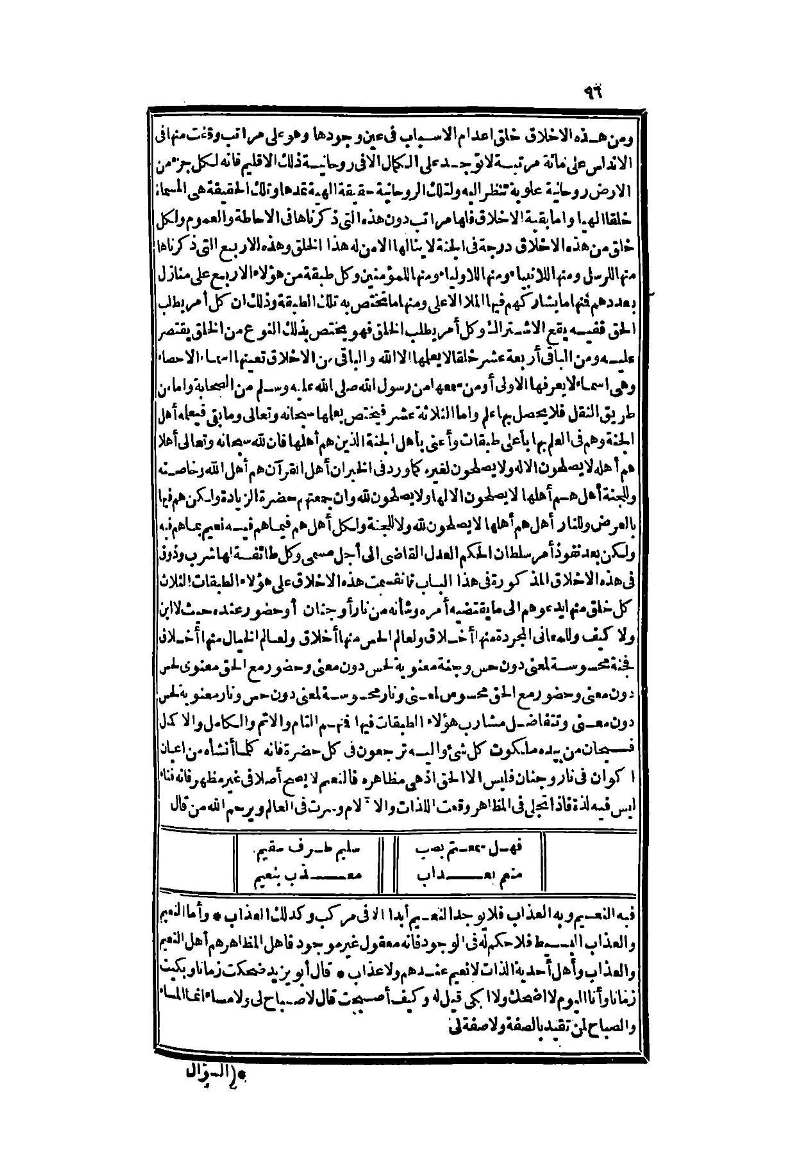 ٩٦
ومن هذه الاخلاق خلق اعدام الاسباب فى عين وجودها وهو على مراتب وقفت منها فى
الاندلس على مائة مرتبة لا توجد على الكمال الا فى روحانية ذلك الاقليم فانه لكل جزء من
الارض روحانية علوية تنظر اليه ولتلك الروحانية حقيقة الهية تمدها وتلك الحقيقة هى المسماة
خلقا الهيا واما بقية الاخلاق فلها مراتب دون هذه التى ذكرناها فى الاحاطة والعموم ولكل
خلق من هذه الاخلاق درجة فى الجنة لا ينالها الا من له هذا الخلق وهذه الاربع التى ذكرناها
منها للرسل ومنها للانبياء ومنها للاولياء ومنها للمؤمنين وكل طبقة من هؤلاء الاربع على منازل
بعددهم فمنها ما يشاركهم فيها الملا الاعلى ومنها ما تختص به تلك الطبقة وذلك ان كل أمر يطلب
الحق ففيه يقع الاشتراك وكل أمر يطلب الخلق فهو يختص بذلك النوع من الخلق يقتصر
عليه ومن الباقى أربعة عشر خلقا لا يعلمها الا الله والباقى من الاخلاق تعينها اسماء الاحصاء
وهى اسماء لا يعرفها الا ولى أو من سمعها من رسول الله صلى الله عليه وسلم من الصحابة واما من
طريق النقل فلا يحصل بها علم واما الثلاثة عشر فيختص بعلمها سبحانه وتعالى وما بقى فيعلمه أهل
الجنة وهم فى العلم بها على طبقات وأعنى بأهل الجنة الذين هم أهلها فان لله سبحانه وتعالى أهلا
هم أهله لا يصلحون الا له ولا يصلحون لغيره كما ورد فى الخبر ان أهل القرآن هم أهل الله وخاصته
وللجنة أهل هم أهلها لا يصلحون الا لها ولا يصلحون لله وان جمعتهم حضرة الزيادة ولكن هم فيها
بالعرض وللنار أهل هم أهلها لا يصلحون لله ولا للجنة ولكل أهل هم فيما هم فيه نعيم بما هم فيه
ولكن بعد نفوذ أمر سلطان الحكم العدل القاضى الى أجل مسمى وكل طائفة لها شرب وذوق
فى هذه الاخلاق المذكورة فى هذا الباب فانقسمت هذه الاخلاق على هؤلاء الطبقات الثلاث
كل خلق منها يدعوهم الى ما يقتضيه أمره وشأنه من نار أو جنان أو حضور عنده حيث لا اين
ولا كيف وللمعانى المجردة منها أخلاق ولعالم الحس منها أخلاق ولعالم الخيال منها أخلاق
فجنة محسوسة لمعنى دون حس وجنة معنوية لحس دون معنى وحضور مع الحق معنوى لحس
دون معنى وحضور مع الحق محسوس لمعنى ونار محسوسة لمعنى دون حس ونار معنوية لحس
دون معنى وتتفاضل مشارب هؤلاء الطبقات فيها فمنهم التام والاتم والكامل والاكمل
فسبحان من بيده ملكوت كل شئ واليه ترجعون فى كل حضرة فانه كلما أنشأه من اعيان
اكوان فى نار وجنان فليس الا الحق اذ هى مظاهره فالنعيم لا يصح أصلا فى غير مظهر فانه فناء
ليس فيه لذة فاذا تجلى فى المظاهر وقعت اللذات والآلام وسرت فى العالم ويرحم الله من قال
فهل سمعتم بصب سليم طرف سقيم
منعم بعذاب معذب بنعيم
فبه النعيم وبه العذاب فلا يوجد النعيم أبدا الا فى مركب وكذلك العذاب * وأما النعيم
والعذاب البسيط فلا حكم له فى الوجود فانه معقول غير موجود فاهل المظاهر هم أهل النعيم
والعذاب وأهل أحدية الذات لا نعيم عندهم ولا عذاب * قال أبو يزيد ضحكت زمانا وبكيت
زمانا وأنا اليوم لا اضحك ولا ابكى قيل له وكيف أصبحت قال لا صباح لى ولا مساء انما المساء
والصباح لمن تقيد بالصفة ولا صفة لى
*(السؤال